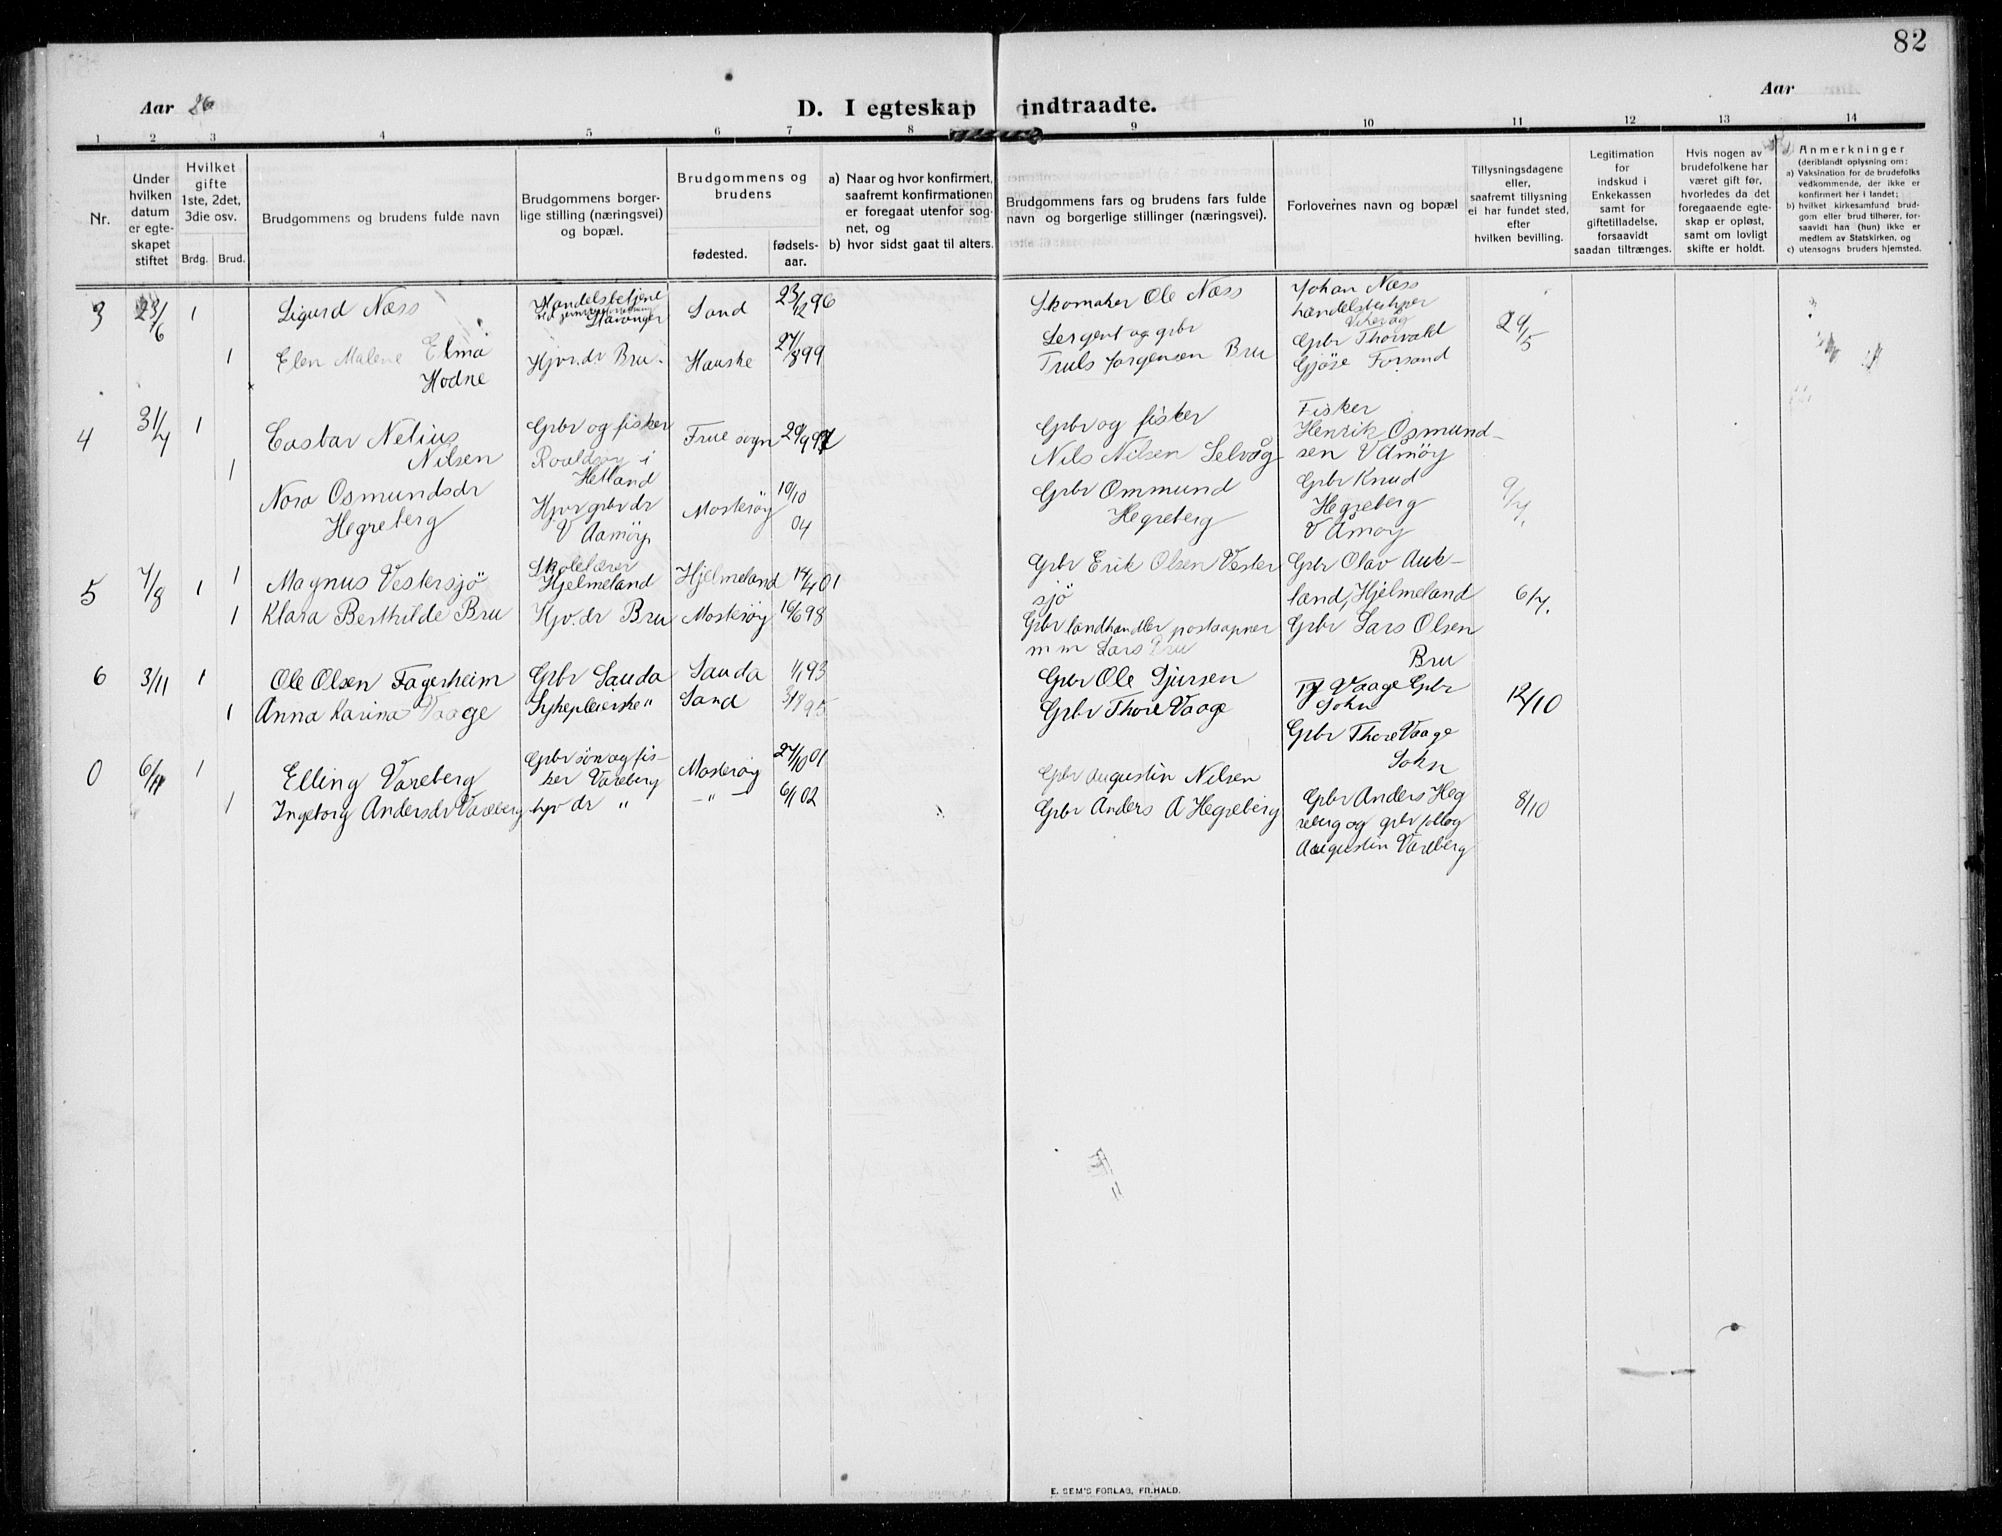 82
Aar 26
D. I egteskap indtraadte.
Aar
1 2 3 4 5 6 7 8 9 10 11 12 13 14
Nr.
Under hvilken datum er egte-skapet stiftet
Hvilket gifte 1ste, 2det, 3die osv.
Brdg. Brud.
Brudgommens og brudens fulde navn
Brudgommens borger-lige stilling (næringsvei) og bopæl.
Brudgommens og brudens
fødested.
fødsels-aar.
a) Naar og hvor konfirmert, saafremt konfirmationen er foregaat utenfor sog-net, og
b) hvor sidst gaat til alters.
Brudgommens fars og brudens fars fulde navn og borgerlige stillinger (næringsvei).
Forlovernes navn og bopæl
Tillysningsdagene eller, saafremt tillysning ei har fundet sted, efter hvilken bevilling.
Legitimation for indskud i Enkekassen samt for giftetilladelse, forsaavidt saadan tiltrænges.
Hvis nogen av brudefolkene har været gift før, hvorledes da det foregaaende egte-skap er opløst, samt om lovligt skifte er holdt.
Anmerkninger (deriblandt oplysning om:
a) Vaksination for de brudefolks vedkommende, der ikke er konfirmert her i landet;
b) hvilket kirkesamfund brud-gom eller brud tilhører, for-saavidt han (hun) ikke er medlem av Statskirken, og
c) utensogns bruders hjemsted.
3 23/6 1 Sigurd Næss
Handelsbetjent
Stavanger
Sand 23/12 96
Skomaker Ole Næss
Johan Næss
handelsbestyrer
Vikevåg
29/5
1 Elen Malene Elma
Hodne
Hjv. dr Bru
Hauske 27/8 99
Sergent og grbr
Truls Jørgensen Bru
Grbr Thorvald
Gjøse Forsand
4 31/7 1 Casbar Nelius
Nilsen
Grbr og fisker
Roaldsøy i
Hetland
Frue sogn 29/9 97
Grbr og fisker
Nils Nilsen Selvåg
Fisker
Henrik Osmund-
sen V Amøy
1 Nora Osmundsdr
Hegreberg
Hjv grbr dr
V Aamøy
Mosterøy 10/10
04
Grbr Ommund
Hegreberg
Grbr Knud
Hegreberg
V Amøy
9/7.
5 7/8 1 1 Magnus Vestersjø
Skolelærer
Hjelmeland
Hjelmeland 14/4 01
Grbr Erik Olsen Vester
sjø
Grbr Olav Auk-
land, Hjelmeland
6/7.
1 Klara Berthilde Bru
Hjv. dr Bru
Mosterøy 16/6 98
Grbr landhandler postaapner
m m Lars Bru
Grbr Lars Olsen
Bru
6 3/11 1 Ole Olsen Fagerheim
Grbr Sauda
Sauda 1/1 93
Grbr Ole Djursen
Vaage Grbr
Sokn
12/10
1 Anna Karina Vaage
Sykepleierske "
Sand 3/8 95
Grbr Thore Vaage
Grbr Thore Vaage
Sokn
0 6/11 1 Elling Vareberg
Grbr søn og fis-
ker Vareberg
Mosterøy 27/10 01
Grbr Augustin Nilsen
1 Ingeborg Andersdr Vareberg
hjv dr "
-"- 6/1 02
Grbr Anders A Hegreberg
Grbr Anders Heg
reberg og grbr
Augustin Vareberg
8/10
E. SEM'S FORLAG, FR.HALD.